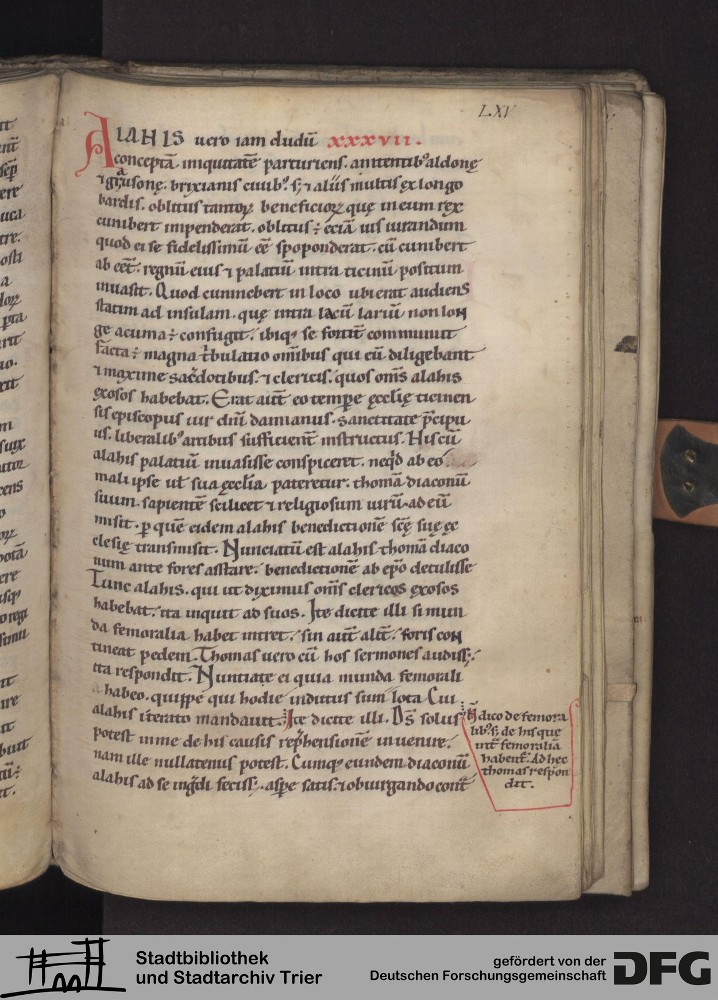 LXV
ALAHIS vero iam dudū xxxvii.
conceptā iniquitatē parturiens. annitentib᷒ aldonę
⁊ grausonę. brixianis ciuib᷒. s; ⁊ aliis multis ex longo
bardis. oblitus tantoꝝ beneficioꝝ quę in eum rex
cunibert impenderat. oblitus ÷ eciā uis iurandum
quod ei se fidelissimū eē spoponderat. cū cunibert
ab eēt. regnū eius ⁊ palatiū intra ticinū positum
inuasit. Quod cunincbert in loco ubi erat audiens
statim ad insulam. quę intra lacū lariū non lon
ge a cuma ÷ confugit. ibiq; se fortit̄ communiit
Facta ÷ magna t̄bulatio omībus qui eū diligebant
⁊ maxime sac̄dotibus. ⁊ clericis. quos om̄s alahis
exosos habebat. Erat aut̄ eo tempr̄e ęcclię ticinen
sis episcopus uir dn̄i damianus. sanctitate p̄cipu
us. liberalib᷒ artibus sufficient̄ instructus. His cū
alahis palatiū inuasisse conspiceret. neq̇d ab eo
mali ipse uł sua ęcclia pateretur. thomā diaconū
suum. sapientē scilicet ⁊ religiosum uirū. ad eū
misit. ꝑ quē eidem alahis benedictionē scę̄ suę ęc
clesię transmisit. Nunciatū est alahis thomā diaco
num ante fores asstare. benedictionē ab ep̄o detulisse
Tunc alahis. qui ut diximus om̄s clericos exosos
habebat. ita inquit ad suos. Ite dicite illi si mun
da femoralia habet intret. sin aut̄ alit̄. foris con
tineat pedem. Thomas vero cū hos sermones audiss;.
ita respondit. Nuntiate ei quia munda femorali
a habeo. quippe qui hodie indutus sum lota Cui
alahis iterato mandauit. Ite dicite illi. Ds̄ solus
potest in me de his causis rep̄hensionē inuenire.
nam ille nullatenus potest. Cumq; eundem diaconū
alahis ad se ing̊di feciss;. aspe satis. ⁊ obiurgando cont̄
n̄ dico de femora
lib᷒ s; de his que
int̄ femoralia
habent̄. Ad hec
thomas respon
dit.
Stadtbibliothek
und Stadtarchiv Trier
gefördert von der
Deutschen Forschungsgemeinschaft
DFG